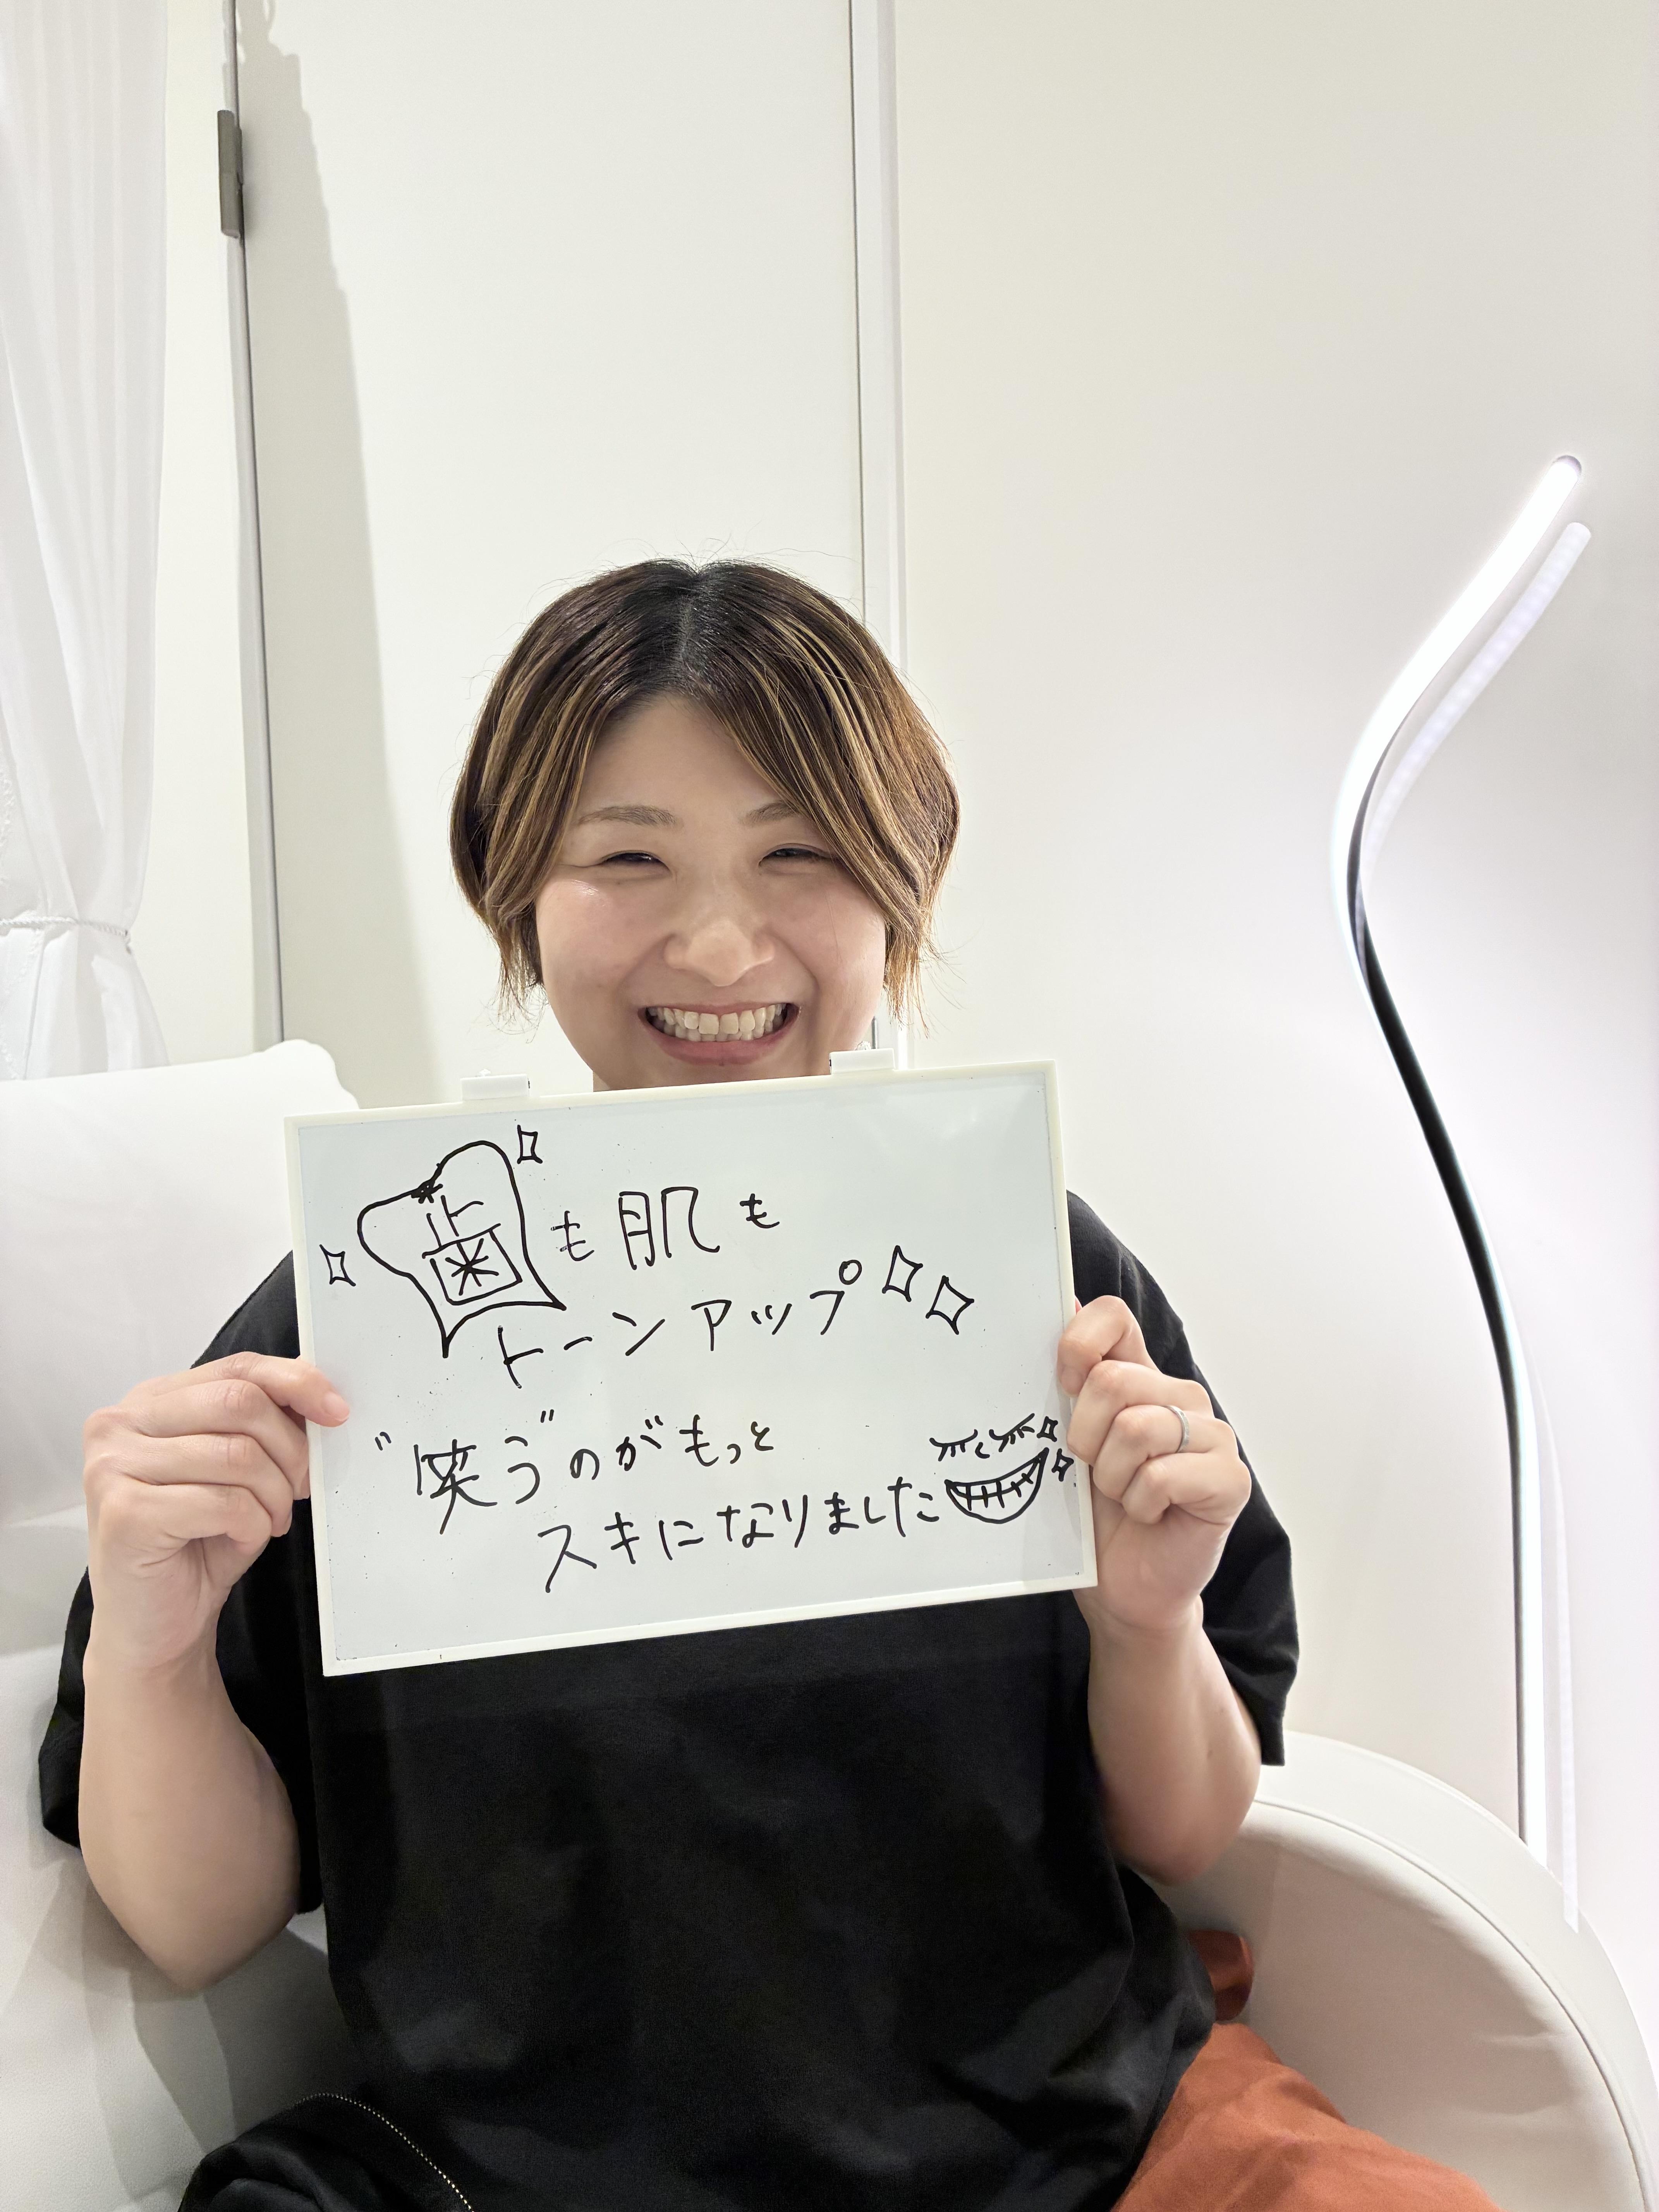 歯も肌も
トーンアップ
"笑う"のがもっと
スキになりました